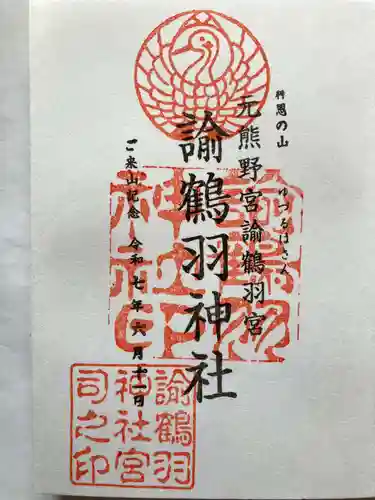 神恩の山
ゆづるはさん
元熊野宮諭鶴羽宮
諭鶴羽神社
ご来山記念 令和七年六月十一日
諭鶴羽
神社宮
司之印